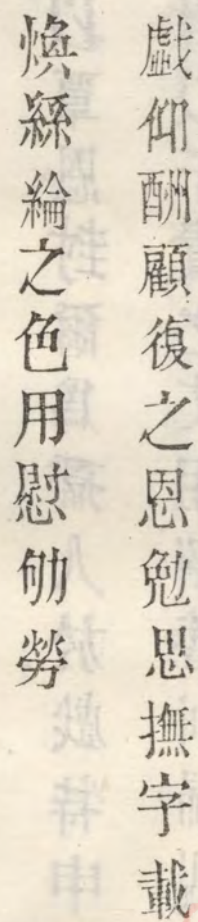 戲仰酬顧復之恩勉思撫字載
煥絲綸之色用慰劬勞